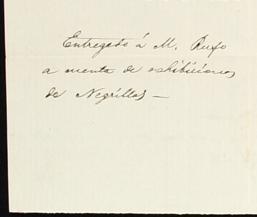 Entregado á M. Rufo
a cuenta de exhibiciones
de Negrillos —